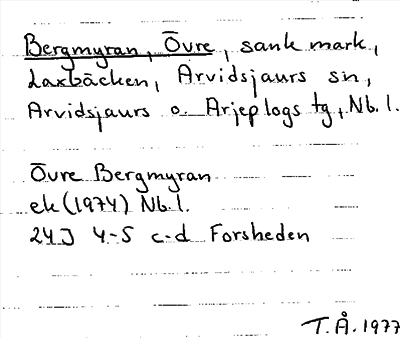 Bergmyran, Övre, sank mark,
Laxbäcken, Arvidsjaurs sn,
Arvidsjaurs o. Arjeplogs tg, Nb. l.
Övre Bergmyran
ek (1974) Nb. l.
24J 4-5 c-d Forsheden
T.Å. 1977